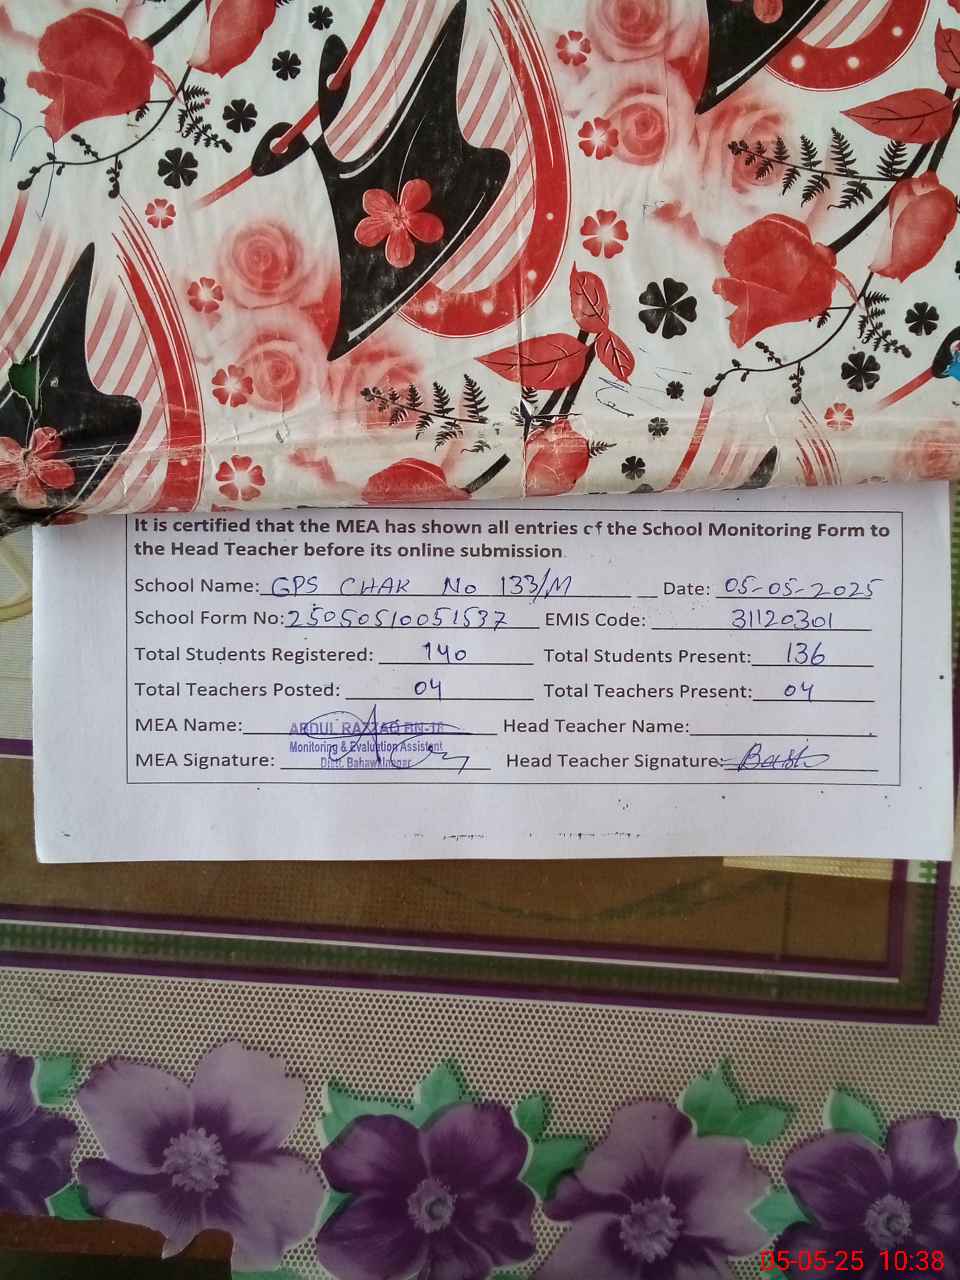 It is certified that the MEA has shown all entries of the School Monitoring Form to
the Head Teacher before its online submission.
School Name: GPS CHAK No 133/M Date: 05-05-2025
School Form No: 25050510051537 EMIS Code: 31120301
Total Students Registered: 140 Total Students Present: 136
Total Teachers Posted: 04 Total Teachers Present: 04
MEA Name: ABDUL RAZZAQ BN-18 Head Teacher Name:
Monitoring & Evaluation Assistant
Distt. Bahawalnagar
MEA Signature: Head Teacher Signature:
05-05-25 10:38